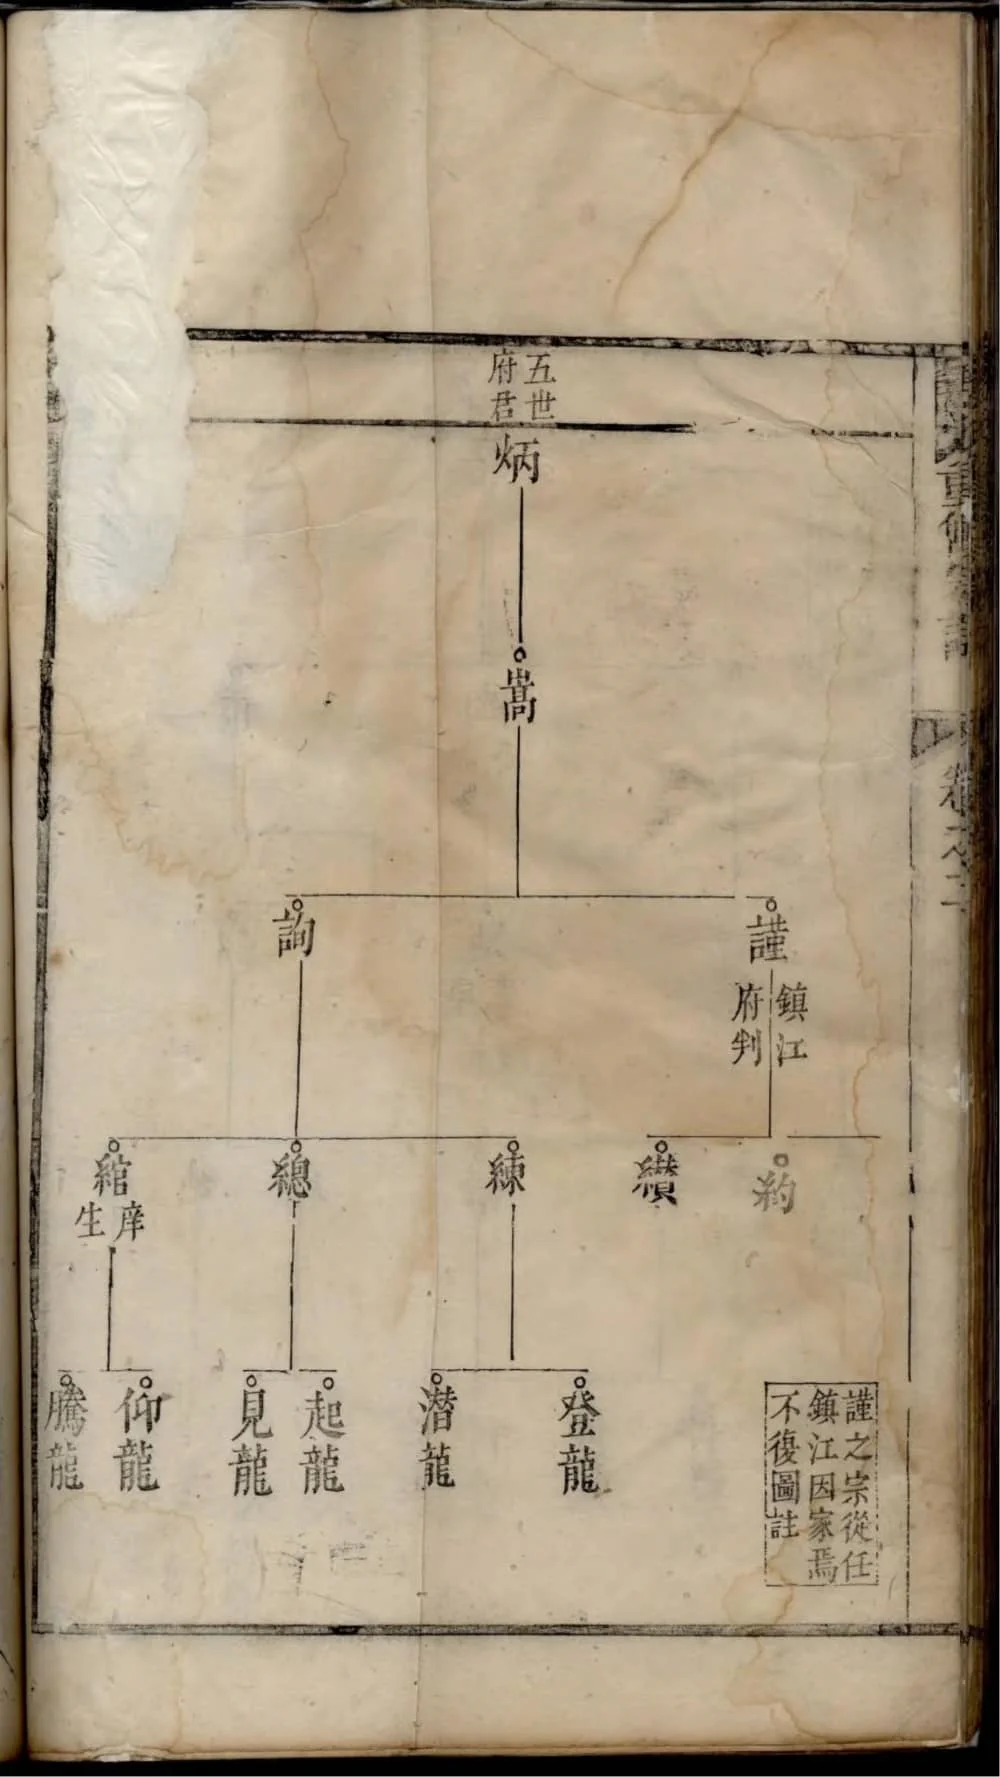 五世
府君
炳
嵩
謹
鎮江
府判
詢
約
纘
練
總
綰
庠
生
登龍
潛龍
起龍
見龍
仰龍
騰龍
謹之宗從任
鎮江因家焉
不復圖註
重修宗譜
卷之二